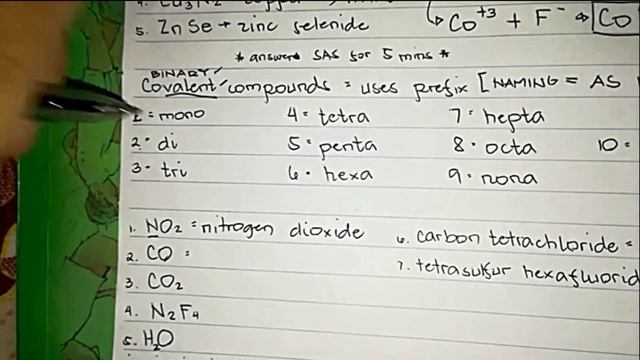 5. ZnSe → zinc selenide
Co+3 + F- ⇒ Co
* answer SAS for 5 mins *
BINARY
Covalent compounds = uses prefix [NAMING = AS
1 = mono 4 = tetra 7 = hepta
2 = di 5 = penta 8 = octa 10 =
3 = tri 6 = hexa 9 = nona
1. NO2 = nitrogen dioxide
2. CO =
3. CO2
4. N2F4
5. H2O
6. carbon tetrachloride =
7. tetrasulfur hexafluorid